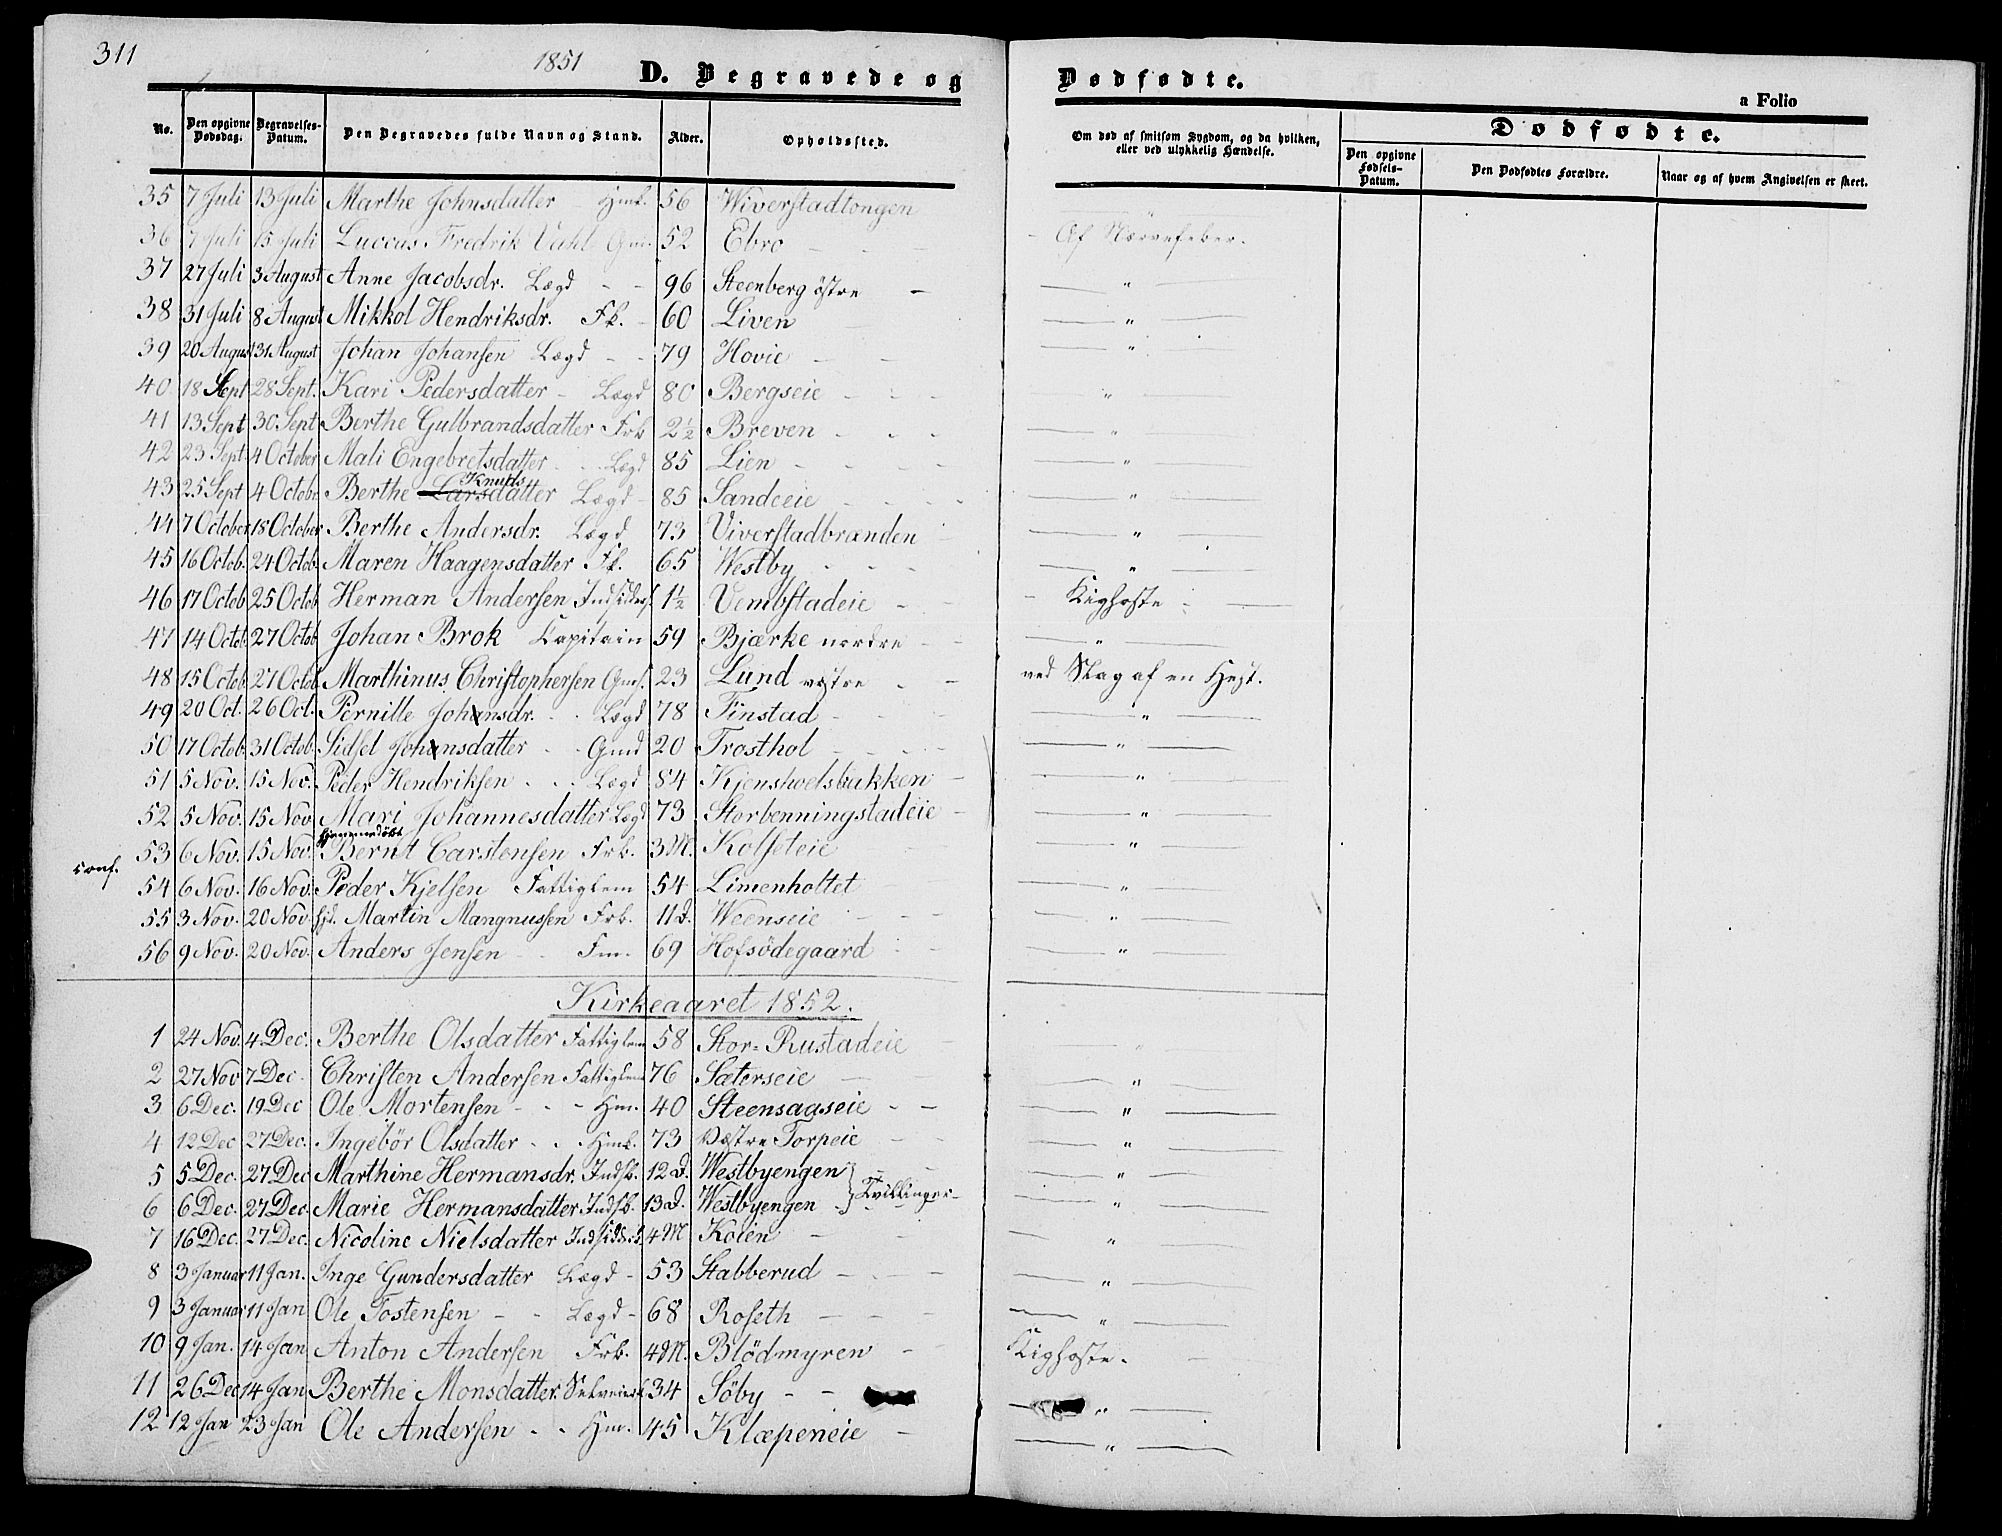 311
1851
D. Begravede og Dødfødte.
a Folio
No. Den opgivne Dødsdag. Begravelses-Datum. Den Begravedes fulde Navn og Stand. Alder. Opholdssted. Om død af smitsom Sygdom, og da hvilken, eller ved ulykkelig Hændelse. Dødfødte. Den opgivne Fødsels-Datum. Den Dødfødtes Forældre. Naar og af hvem Angivelsen er skeet.
35 7 Juli 13 Juli Marthe Johnsdatter - Hmk. 56 Wiverstadtongen
36 7 Juli 15 Juli Luccas Fredrik Vahl Gm. 52 Ebro - - - Af Nærvefeber.
37 27 Juli 3 August Anne Jacobsdr. Lægd - - 96 Steenberg östre - — " —
38 31 Juli 8 August Mikkol Hendriksdr. Fk. - 60 Liven — " —
39 20 August 31 August Johan Johansen Lægd - - 79 Hovie - - — " —
40 18 Sept 28 Sept. Kari Pedersdatter - Lægd 80 Bergseie - - - " —
41 13 Sept 30 Sept Berthe Gulbrandsdatter Frb 2½ Breven - - - — " —
42 23 Sept 4 October Mali Engebretsdatter - - Lægd 85 Lien - - - — " —
43 25 Sept 4 Octobr Berthe Larsdatter Knuds Lægd - 85 Sandeeie - - - — " —
44 7 October 18 October Berthe Andersdr. Lægd 73 Viverstadbrænden - — " —
45 16 Octob. 24 Octob. Maren Haagensdatter Fk. 65 Westby - - - — " —
46 17 Octob 25 Octob Herman Andersen Indsidders. 1½ Vembstadeie - - - Kighoste - —
47 14 Octob. 27 Octob Johan Brok Capitain 59 Bjærke nordre - - — " —
48 15 Octob 27 Octob Marthinus Christophersen Gms. 23 Lund vestre - - ved Slag af en Hest.
49 20 Oct. 26 Oct. Pernille Johansdr. - - Lægd 78 Finstad - - - — " —
50 17 Octob. 31 Octob. Sidsel Johansdatter - - Gmd 20 Trosthol - - - - — " —
51 5 Nov. 15 Nov. Peder Hendriksen - - - Lægd 84 Kjenshoelsbakken - — " —
52 5 Nov. 15 Nov Mari Johannesdatter Lægd 73 Storbenningstadeie - — " —
hjemmedöbt
53 6 Nov. 15 Nov. Bernt Carstensen Frb. 3 M. Kolseteie — " —
conf.
54 6 Nov. 16 Nov. Peder Kjelsen Fattiglem 54 Limenholtet — " —
55 3 Nov. 20 Nov. hjd. Martin Mangnussen Frb. 11 d. Weenseie - - - — " —
56 9 Nov. 20 Nov. Anders Jensen - - Fm. 69 Hofsödegaard - - — " —
Kirkeaaret 1852.
1 24 Nov. 4 Dec. Berthe Olsdatter Fattiglem 58 Stor-Rustadeie - — " —
2 27 Nov 7 Dec. Christen Andersen Fattiglem 76 Sæterseie - — " —
3 6 Dec. 19 Dec Ole Mortensen - - - Hm. 40 Steensaaseie - - — " —
4 12 Dec 27 Dec. Ingebör Olsdatter - - Hmk. 73 Vestre Torpeie - - — " —
5 5 Dec. 27 Dec Marthine Hermansdr. Indsb. 12 d. Westbyengen } — " —
6 6 Dec. 27 Dec. Marie Hermansdatter Indsb. 13 d. Westbyengen } Tvillinger - — " —
7 16 Dec. 27 Dec. Nicoline Nielsdatter 4 M Koien - - — " —
8 3 Januar 11 Jan. Inge Gundersdatter Lægd - 53 Stabberud - - - — " —
9 3 Januar 11 Jan Ole Tostensen - - Lægd - 68 Roseth - - - — " —
10 9 Jan. 14 Jan Anton Andersen Frb. 4 M. Blödmyren - - Kighoste. -
11 26 Dec 14 Jan Berthe Monsdatter 34 Söby - - — " —
12 12 Jan 23 Jan Ole Andersen - - Hm. 45 Klæpeneie - — " —